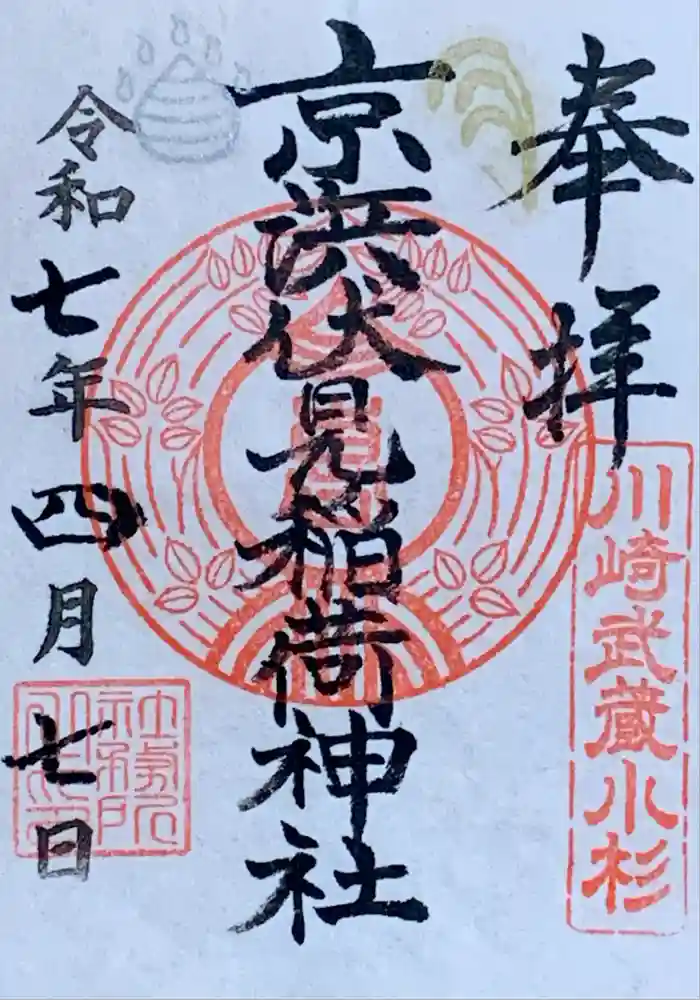 奉拝
川崎武蔵小杉
京浜伏見稲荷神社
令和七年四月七日